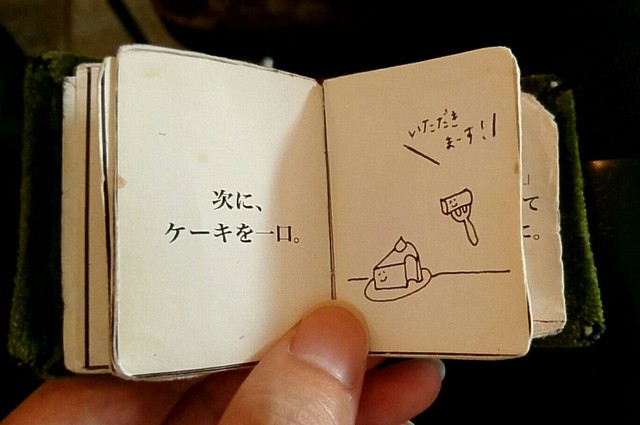 次に、
ケーキを一口。
いただき
まーす!!
」
て
こ。